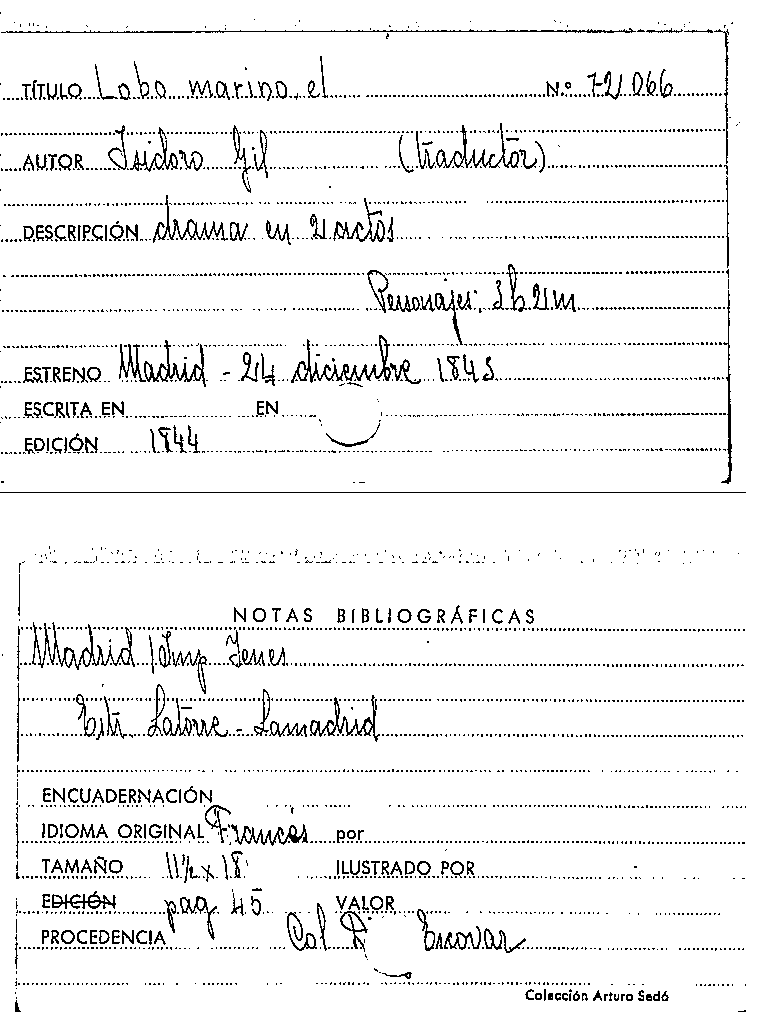 TÍTULO Lobo marino, el N.º 72066
AUTOR Isidoro Gil (traductor)
DESCRIPCIÓN drama en 2 actos
Personajes: 3h 2m
ESTRENO Madrid - 24 diciembre 1843
ESCRITA EN EN
EDICIÓN 1844
NOTAS BIBLIOGRÁFICAS
Madrid / Imp Yenes
Estr Latorre - Lamadrid
ENCUADERNACIÓN
IDIOMA ORIGINAL Francés por
TAMAÑO 11½ x 18 ILUSTRADO POR
EDICIÓN pag 45 VALOR
PROCEDENCIA Col Escovar
Colección Arturo Sedó